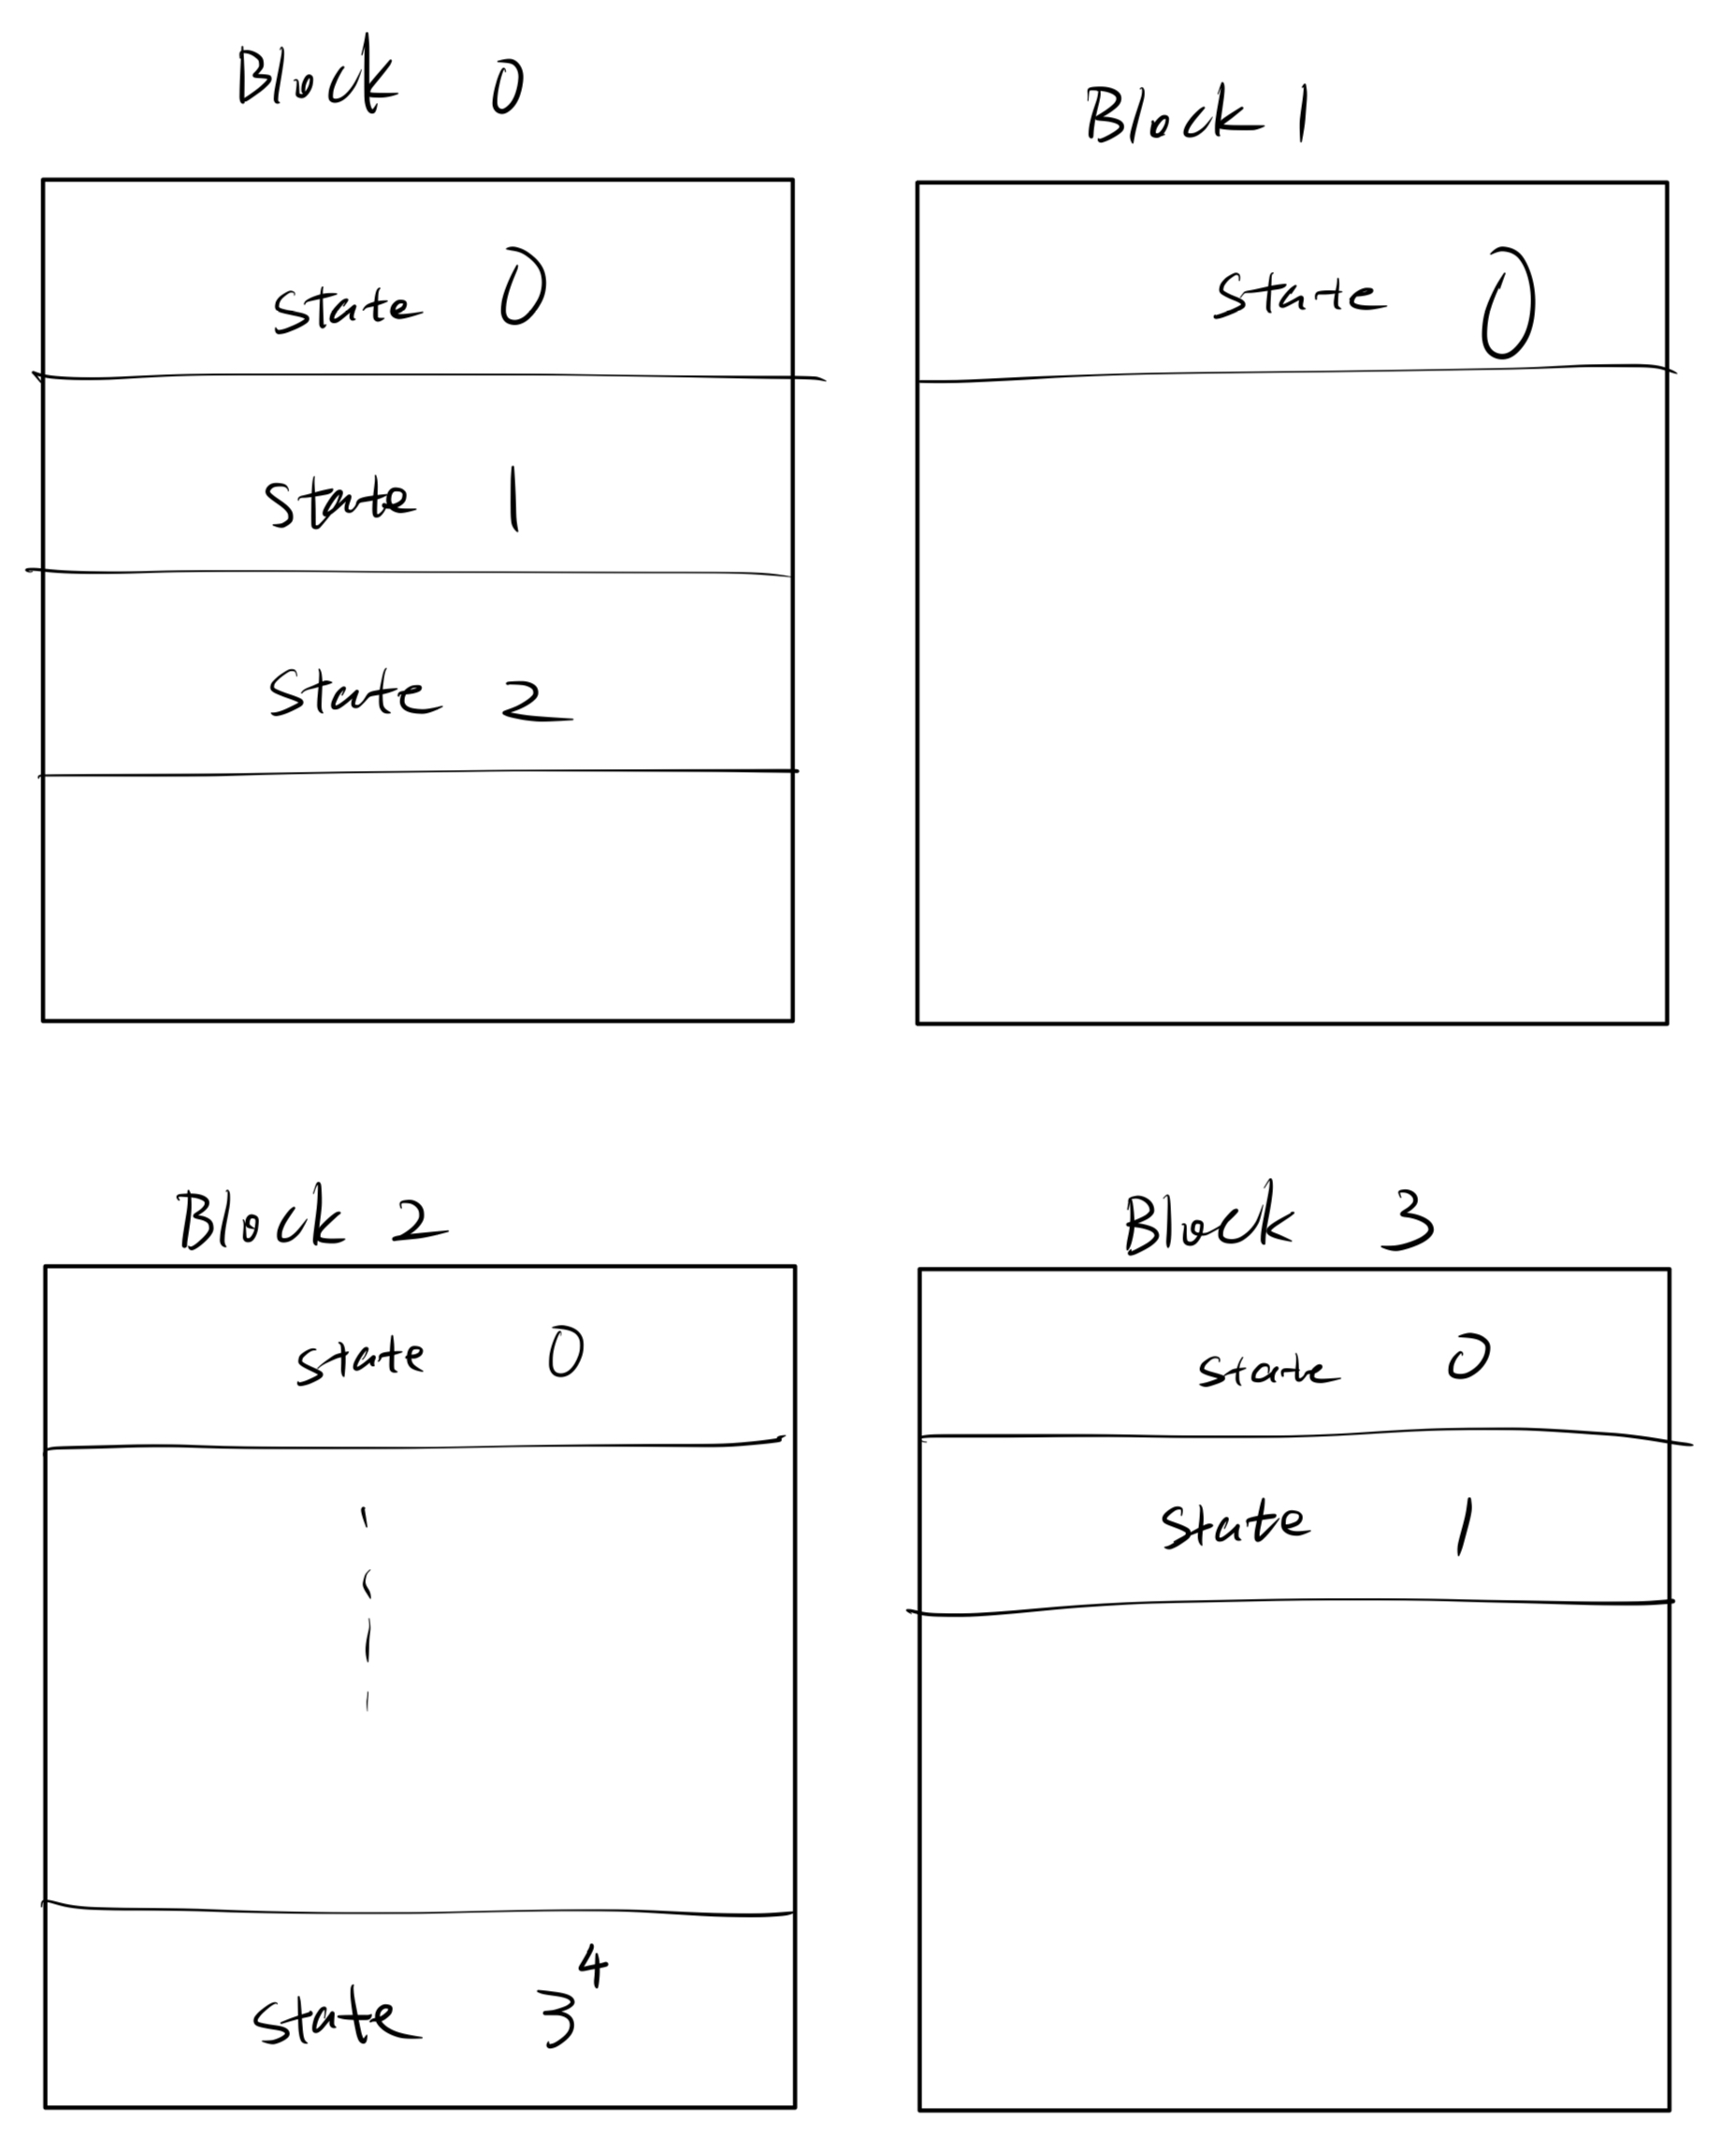 Block 0
state 0
state 1
state 2
Block 1
state 0
Block 2
state 0
state 3⁴
Block 3
state 0
state 1